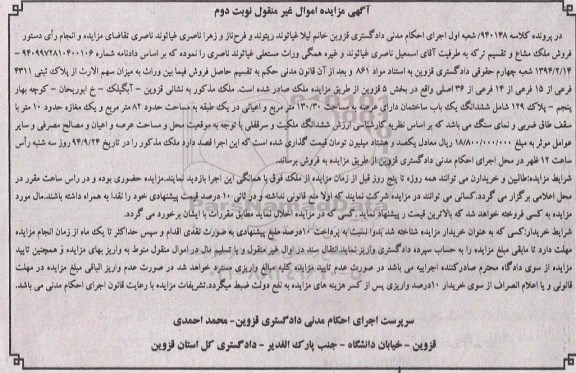 آگهی مزایده اموال غیر منقول نوبت دوم
در پرونده کلاسه ۹۴۰۱۴۸/ شعبه اول اجرای احکام مدنی دادگستری قزوین خانم لیلا غیاثوند ریتوند و فرح‌ناز و زهرا ناصری غیاثوند ناصری تقاضای مزایده و انجام رأی دستور
فروش ملک مشاع و تقسیم ترکه به طرفیت آقای اسمعیل ناصری غیاثوند و غیره همگی وراث مستعلی غیاثوند ناصری را نموده که بر اساس دادنامه شماره ۹۴۰۹۹۷۲۸۱۰۴۰۰۱۰۶ -
۱۳۹۴/۲/۱۴ شعبه چهارم حقوقی دادگستری قزوین به استناد مواد ۸۶۱ و بعد از آن قانون مدنی حکم به تقسیم حاصل فروش فیما بین وراث به میزان سهم الارث از پلاک ثبتی ۴۳۱۱
فرعی از ۱۵ فرعی از ۱۴ فرعی از ۳۶ اصلی واقع در بخش ۵ قزوین از طریق مزایده ملک صادر شده است. ملک مذکور به نشانی قزوین - آبگیلک - خ ابوریحان - کوچه بهار
پنجم - پلاک ۱۲۹ شامل ششدانگ یک باب ساختمان دارای عرصه به مساحت ۱۳۰/۳۰ متر مربع و اعیانی در یک طبقه به مساحت حدود ۸۲ متر مربع و یک مغازه حدود ۱۰ متر با
سقف طاق ضربی و نمای سنگ می باشد که بر اساس نظریه کارشناسی ارزش ششدانگ ملکیت و سرقفلی با توجه به موقعیت محل و مساحت عرصه و اعیان و مصالح مصرفی و سایر
عوامل موثر به مبلغ ۱/۸۰۰/۰۰۰/۰۰۰ ریال معادل یکصد و هشتاد میلیون تومان قیمت گذاری شده است که این اجرا قصد دارد ملک مذکور را در تاریخ ۹۴/۹/۲۴ روز سه شنبه رأس
ساعت ۱۲ ظهر در محل اجرای احکام مدنی دادگستری قزوین از طریق مزایده به فروش برساند.
شرایط مزایده:طالبین و خریداران می توانند همه روزه تا پنج روز قبل از زمان مزایده از ملک فوق با هماهنگی این اجرا بازدید نمایند.مزایده حضوری بوده و در راس ساعت مقرر در
محل اعلامی برگزار می گردد.کسانی می توانند در مزایده شرکت نمایند که اولاً منع قانونی نداشته و در ثانی ۱۰ درصد قیمت پیشنهادی خود را نقدا به همراه داشته باشند.مال مورد
مزایده به کسی فروخته خواهد شد که بالاترین قیمت را پیشنهاد نماید.کسی که در مزایده اخلال نماید مطابق مقررات با ایشان برخورد می گردد.
شرایط خریدار:کسی که به عنوان خریدار مزایده شناخته شد بدوا نسبت به پرداخت ۱۰درصد مبلغ پیشنهادی به صورت نقدی اقدام و سپس حداکثر تا یک ماه از زمان انجام مزایده
مهلت دارد تا مابقی مبلغ مزایده را به حساب سپرده دادگستری واریز نماید.انتقال سند در اوال غیر منقول و یا تسلیم مال در اموال منقول منوط به واریز بهای مزایده و همچنین تایید
مزایده از سوی دادگاه محترم صادرکننده اجراییه می باشد در صورت عدم تایید مزایده کلیه مبالغ واریزی مسترد خواهد شد در صورت عدم واریز الباقی مبلغ مزایده در مهلت
قانونی و یا اعلام انصراف از سوی خریدار ۱۰درصد واریزی پس از کسر هزینه های مزایده به نفع دولت ضبط میگردد.تشریفات مزایده با رعایت قانون اجرای احکام مدنی می باشد.
سرپرست اجرای احکام مدنی دادگستری قزوین- محمد احمدی
قزوین - خیابان دانشگاه - جنب پارک الغدیر - دادگستری کل استان قزوین